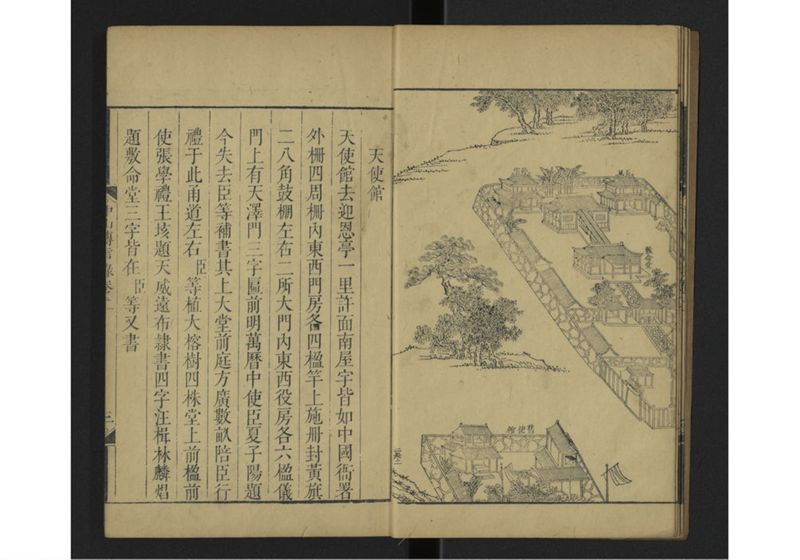 敷命堂
舊使館
天使館
天使館去迎恩亭一里許面南屋宇皆如中國衙署
外柵四周柵內東西門房各四楹竿上施冊封黃旗
二八角鼓棚左右二所大門內東西役房各六楹儀
門上有天澤門三字匾前明萬曆中使臣夏子陽題
今失去臣等補書其上大堂前庭方廣數畝陪臣行
禮于此甬道左右臣等植大榕樹四株堂上前楹前
使張學禮王垓題天威遠布隸書四字汪楫林麟焻
題敷命堂三字皆在臣等又書
中山傳信錄卷
三